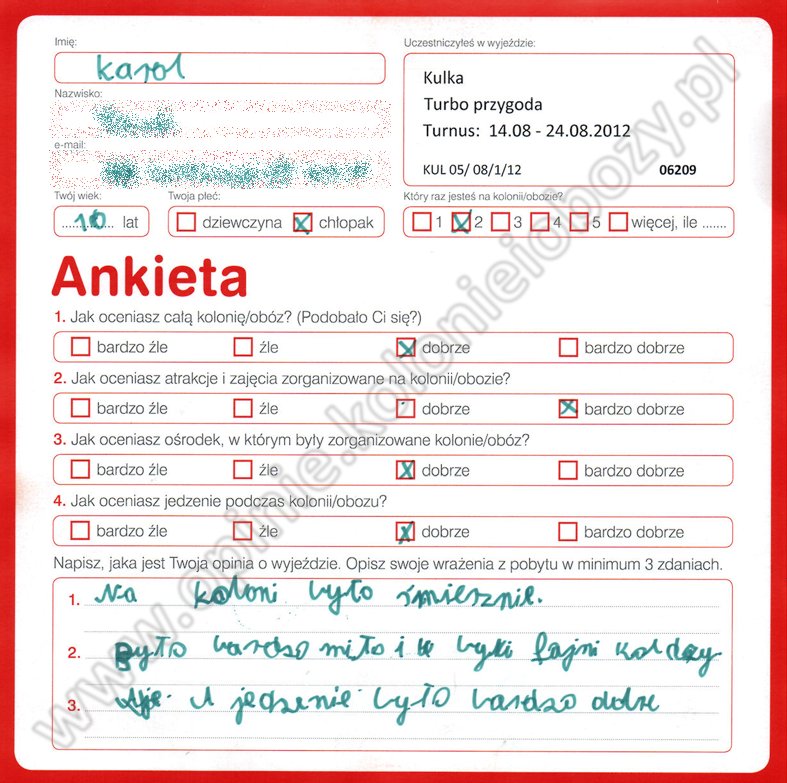 Imię:
Karol
Uczestniczyłeś w wyjeździe:
Kulka
Turbo przygoda
Turnus: 14.08 - 24.08.2012
KUL 05/ 08/1/12 06209
Nazwisko:
e-mail:
Twój wiek:
10 lat
Twoja płeć:
dziewczyna chłopak
Który raz jesteś na kolonii/obozie?
1 2 3 4 5 więcej, ile .......
Ankieta
1. Jak oceniasz całą kolonię/obóz? (Podobało Ci się?)
bardzo źle źle dobrze bardzo dobrze
2. Jak oceniasz atrakcje i zajęcia zorganizowane na kolonii/obozie?
bardzo źle źle dobrze bardzo dobrze
3. Jak oceniasz ośrodek, w którym były zorganizowane kolonie/obóz?
bardzo źle źle dobrze bardzo dobrze
4. Jak oceniasz jedzenie podczas kolonii/obozu?
bardzo źle źle dobrze bardzo dobrze
Napisz, jaka jest Twoja opinia o wyjeździe. Opisz swoje wrażenia z pobytu w minimum 3 zdaniach.
1. Na koloni było śmiesznie.
2. Było bardzo miło i byli fajni koledzy
3. A jedzenie było bardzo dobre
www.opinie.kolonieiobozy.pl